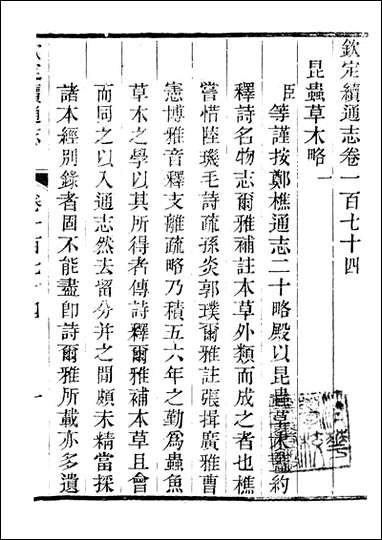 欽定續通志卷一百七十四
昆蟲草木略一
臣等謹按鄭樵通志二十略殿以昆蟲草木蓋約
釋詩名物志爾雅補註本草外類而成之者也樵
嘗惜陸璣毛詩疏孫炎郭璞爾雅註張揖廣雅曹
憲博雅音釋支離疏略乃積五六年之勤為蟲魚
草木之學以其所得者傳詩釋爾雅補本草且會
而同之以入通志然去留分并之閒頗未精當採
諸本經別錄者固不能盡卽詩爾雅所載亦多遺
欽定續通志
卷一百七十四
一